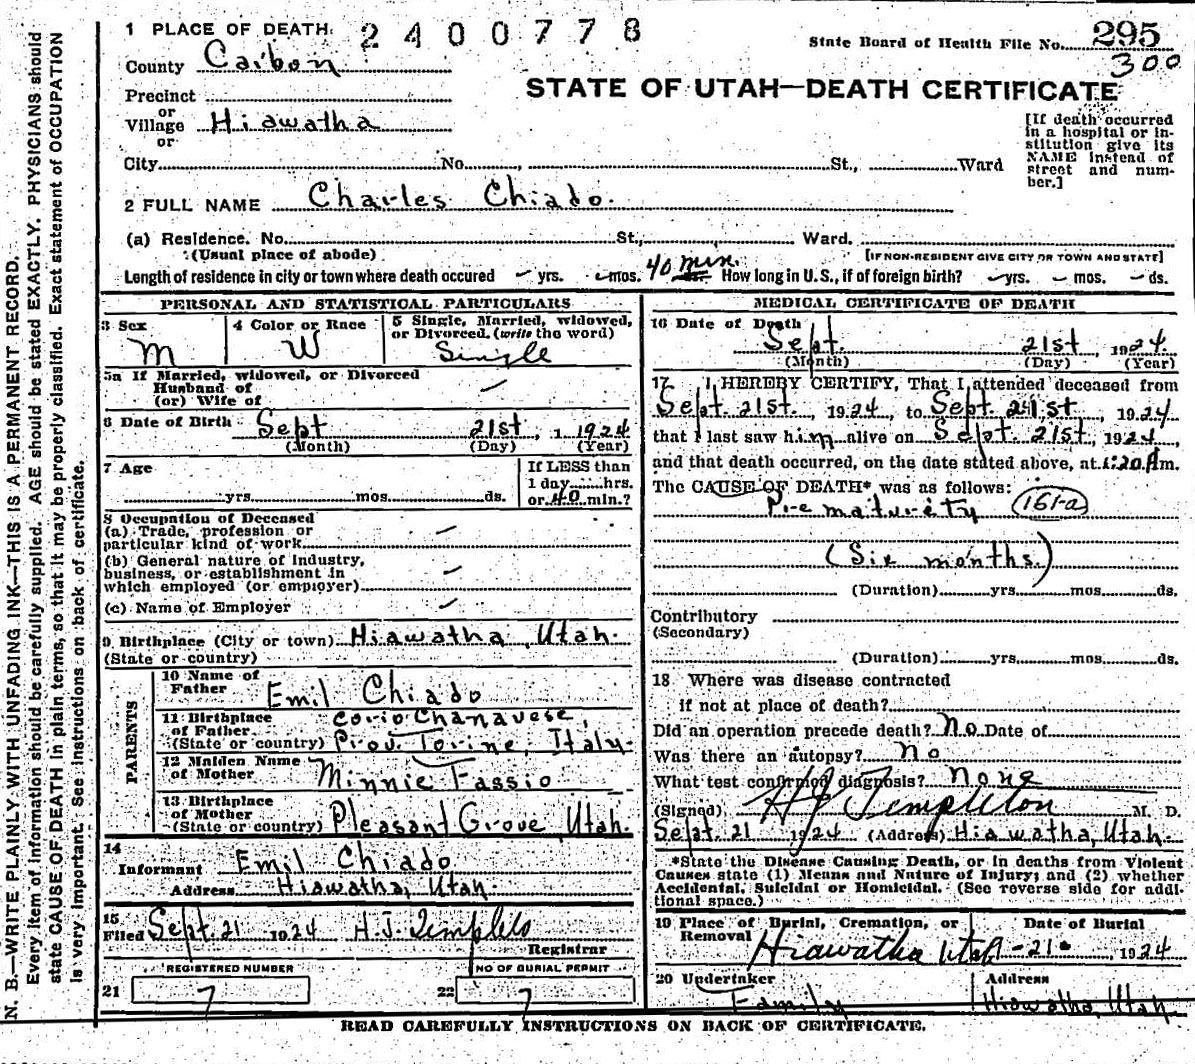 1 PLACE OF DEATH. 2400778
State Board of Health File No. 295
300
County Carbon
STATE OF UTAH—DEATH CERTIFICATE
Precinct
or
Village Hiawatha
or
City No. , St., Ward
[If death occurred
in a hospital or in-
stitution give its
NAME instead of
street and num-
ber.]
2 FULL NAME Charles Chiado.
(a) Residence. No. St., Ward.
(Usual place of abode) [IF NON-RESIDENT GIVE CITY OR TOWN AND STATE]
Length of residence in city or town where death occured – yrs. – mos. 40 min. How long in U.S., if of foreign birth? – yrs. – mos. – ds.
PERSONAL AND STATISTICAL PARTICULARS
3 Sex
M
4 Color or Race
W
5 Single, Married, widowed,
or Divorced. (write the word)
Single
5a If Married, widowed, or Divorced
Husband of
(or) Wife of –
6 Date of Birth Sept 21st, 1924
(Month) (Day) (Year)
7 Age
yrs. mos. ds.
If LESS than
1 day hrs.
or 40 min.?
8 Occupation of Deceased
(a) Trade, profession or
particular kind of work –
(b) General nature of Industry,
business, or establishment in
which employed (or employer) –
(c) Name of Employer –
9 Birthplace (City or town) Hiawatha, Utah.
(State or country)
PARENTS
10 Name of
Father Emil Chiado
11 Birthplace
of Father
(State or country) Corio Chanavese,
Prov. Torine, Italy.
12 Maiden Name
of Mother Minnie Fassio
13 Birthplace
of Mother
(State or country) Pleasant Grove Utah.
14
Informant Emil Chiado
Address Hiawatha, Utah.
15
Filed Sept. 21 1924 H.J. Templeto
Registrar
REGISTERED NUMBER
21 7
NO OF BURIAL PERMIT
22 7
MEDICAL CERTIFICATE OF DEATH
16 Date of Death
Sept. 21st 1924.
(Month) (Day) (Year)
17 I HEREBY CERTIFY, That I attended deceased from
Sept. 21st., 1924, to Sept. 21st, 1924
that I last saw him alive on Sept. 21st, 1924,
and that death occurred, on the date stated above, at 1:20 A.m.
The CAUSE OF DEATH* was as follows:
Prematurety 161-a
(Six months.)
(Duration) yrs. mos. ds.
Contributory
(Secondary)
(Duration) yrs. mos. ds.
18 Where was disease contracted
if not at place of death?
Did an operation precede death? No Date of
Was there an autopsy? No
What test confirmed diagnosis? None
(Signed) H J Templeton M. D.
Sept. 21 1924 (Address) Hiawatha, Utah.
*State the Disease Causing Death, or in deaths from Violent
Causes state (1) Means and Nature of Injury; and (2) whether
Accidental, Suicidal or Homicidal. (See reverse side for addi-
tional space.)
19 Place of Burial, Cremation, or
Removal
Date of Burial
Hiawatha Utah -21- , 1924
20 Undertaker
Family
Address
Hiawatha, Utah.
READ CAREFULLY INSTRUCTIONS ON BACK OF CERTIFICATE.
N. B.—WRITE PLAINLY WITH UNFADING INK—THIS IS A PERMANENT RECORD.
Every item of information should be carefully supplied. AGE should be stated EXACTLY. PHYSICIANS should
state CAUSE OF DEATH in plain terms, so that it may be properly classified. Exact statement of OCCUPATION
is very important. See instructions on back of certificate.